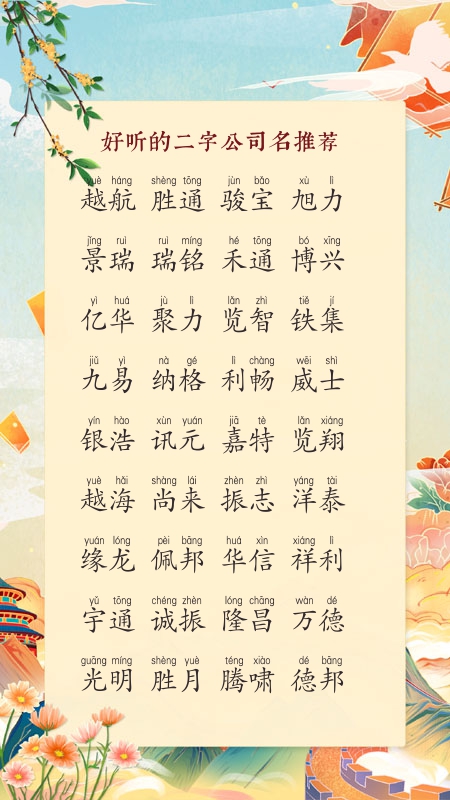 好听的二字公司名推荐
yuè háng shèng tōng jùn bǎo xù lì
越航 胜通 骏宝 旭力
jǐng ruì ruì míng hé tōng bó xīng
景瑞 瑞铭 禾通 博兴
yì huá jù lì lǎn zhì tiě jí
亿华 聚力 览智 铁集
jiǔ yì nà gé lì chàng wēi shì
九易 纳格 利畅 威士
yín hào xùn yuán jiā tè lǎn xiáng
银浩 讯元 嘉特 览翔
yuè hǎi shàng lái zhèn zhì yáng tài
越海 尚来 振志 洋泰
yuán lóng pèi bāng huá xìn xiáng lì
缘龙 佩邦 华信 祥利
yǔ tōng chéng zhèn lóng chāng wàn dé
宇通 诚振 隆昌 万德
guāng míng shèng yuè téng xiào dé bāng
光明 胜月 腾啸 德邦